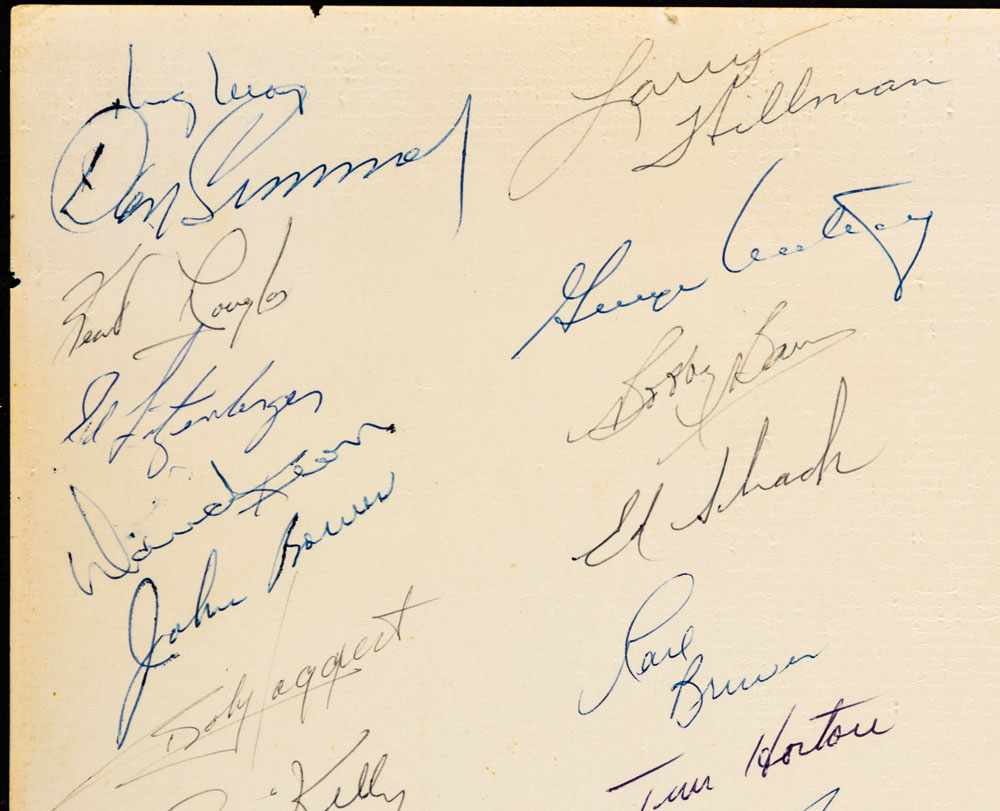 Don Simmons
Kent Douglas
Ed Litzenberger
David Keon
John Bower
Bob Haggert
Kelly
Larry
Hillman
George
Bobby Baun
Ed Shack
Carl
Brewer
Tim Horton